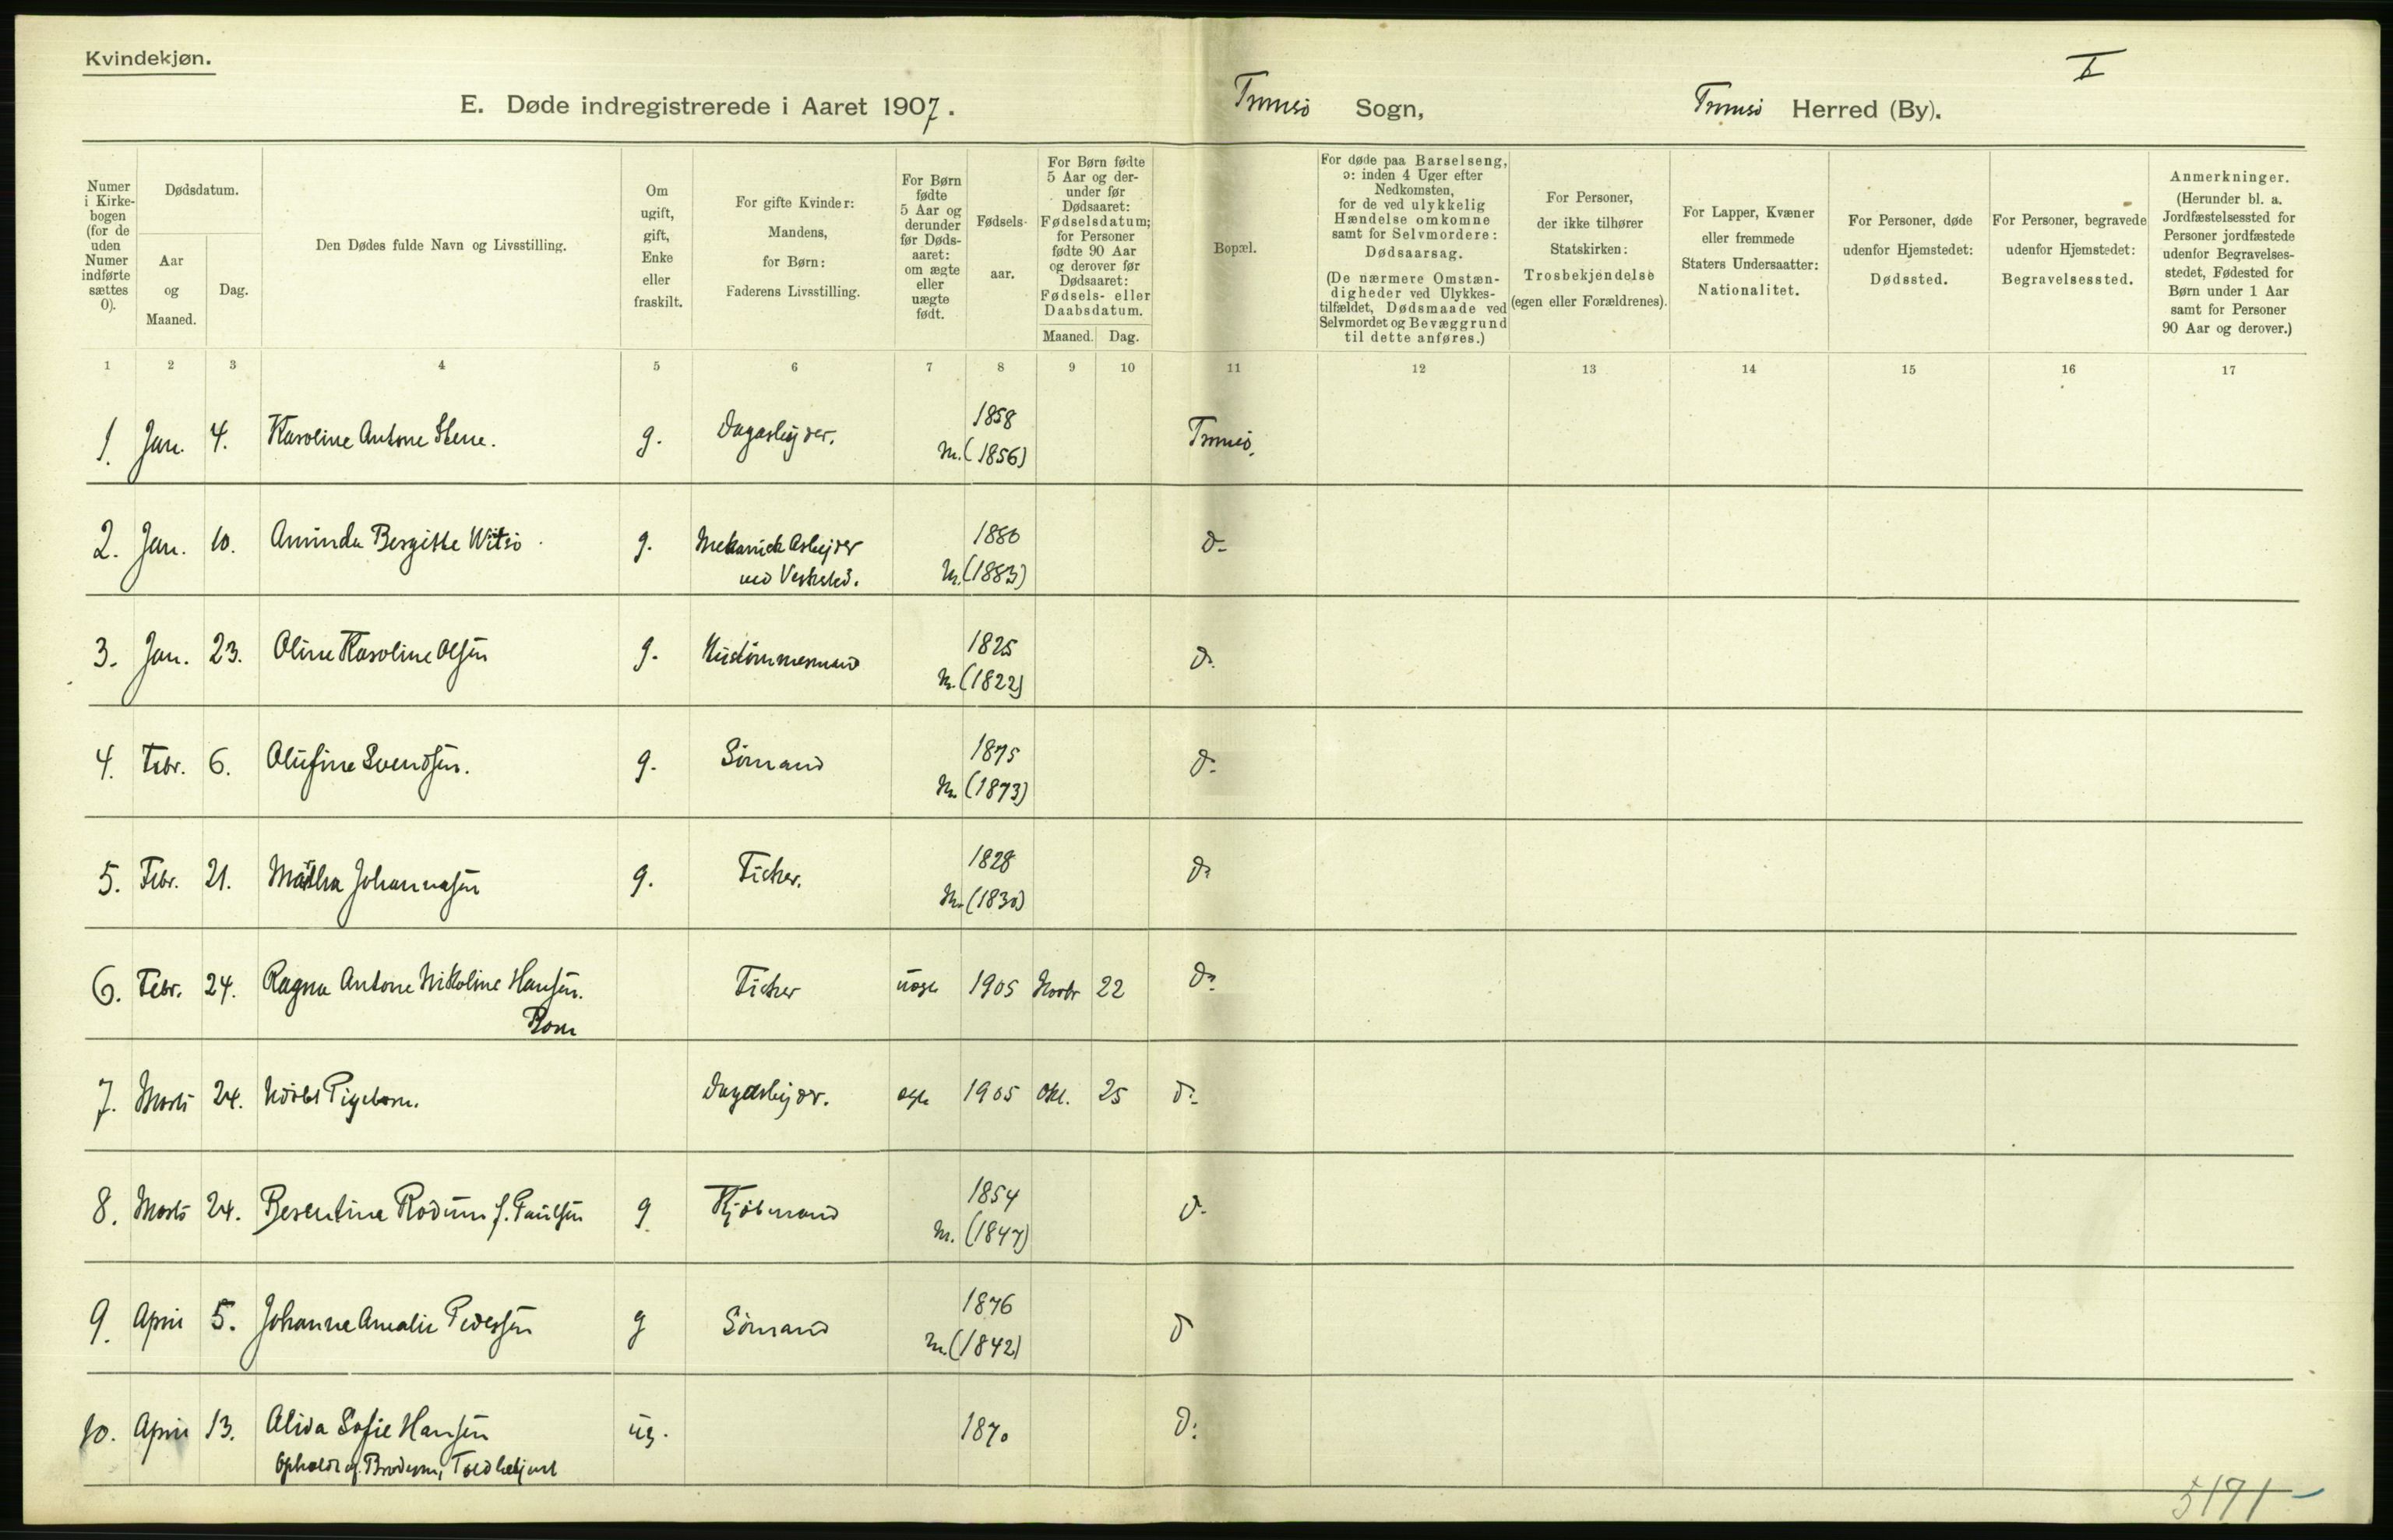 Kvindekjøn.
I
E. Døde indregistrerede i Aaret 1907.
Tromsø Sogn,
Tromsø Herred (By).
Numer i Kirkebogen (for de uden Numer indførte sættes 0).
Dødsdatum.
Aar og Maaned.
Dag.
Den Dødes fulde Navn og Livsstilling.
Om ugift, gift, Enke eller fraskilt.
For gifte Kvinder: Mandens, for Børn: Faderens Livsstilling.
For Børn fødte 5 Aar og derunder før Dødsaaret: om ægte eller uægte født.
Fødselsaar.
For Børn fødte 5 Aar og derunder før Dødsaaret: Fødselsdatum; for Personer fødte 90 Aar og derover før Dødsaaret: Fødsels- eller Daabsdatum.
Maaned. Dag.
Bopæl.
For døde paa Barselseng, ɔ: inden 4 Uger efter Nedkomsten, for de ved ulykkelig Hændelse omkomne samt for Selvmordere: Dødsaarsag.
(De nærmere Omstændigheder ved Ulykkestilfældet, Dødsmaade ved Selvmordet og Bevæggrund til dette anføres.)
For Personer, der ikke tilhører Statskirken: Trosbekjendelse (egen eller Forældrenes).
For Lapper, Kvæner eller fremmede Staters Undersaatter: Nationalitet.
For Personer, døde udenfor Hjemstedet: Dødssted.
For Personer, begravede udenfor Hjemstedet: Begravelsessted.
Anmerkninger. (Herunder bl. a. Jordfæstelsessted for Personer jordfæstede udenfor Begravelsesstedet, Fødested for Børn under 1 Aar samt for Personer 90 Aar og derover.)
1 2 3 4 5 6 7 8 9 10 11 12 13 14 15 16 17
1. Jan. 4. Karoline Antone Stene. g. Dagarbejder. 1858 Tromsø.
M. (1856)
2. Jan. 10. Aminda Bergitte Witsø g. Mekanisk Arbejder 1880 do
ved Verksted. M. (1883)
3. Jan. 23. Oline Karoline Olsen g. Hustømmermand 1825 do
M. (1822)
4. Febr. 6. Olufine Svendsen. g. Sømand 1875 do
M. (1873)
5. Febr. 21. Martha Johannesen g. Fisker. 1828 do
M. (1830)
6. Febr. 24. Ragna Antone Nikoline Hansen. Fisker uægte 1905 Novbr 22 do
Barn
7. Marts 24. Udøbt Pigebarn. Dagarbejder. ægte 1905 Okt. 25 do
8. Marts 24. Berentine Rødum f. Paulsen g Kjøbmand 1854 do
M. (1847)
9. April 5. Johanne Amalie Pedersen g Sømand 1876 do
M. (1842)
10. April 13. Alida Sofie Hansen ug. 1870 do
Opholdt af Broderen, Toldbetjent
5171